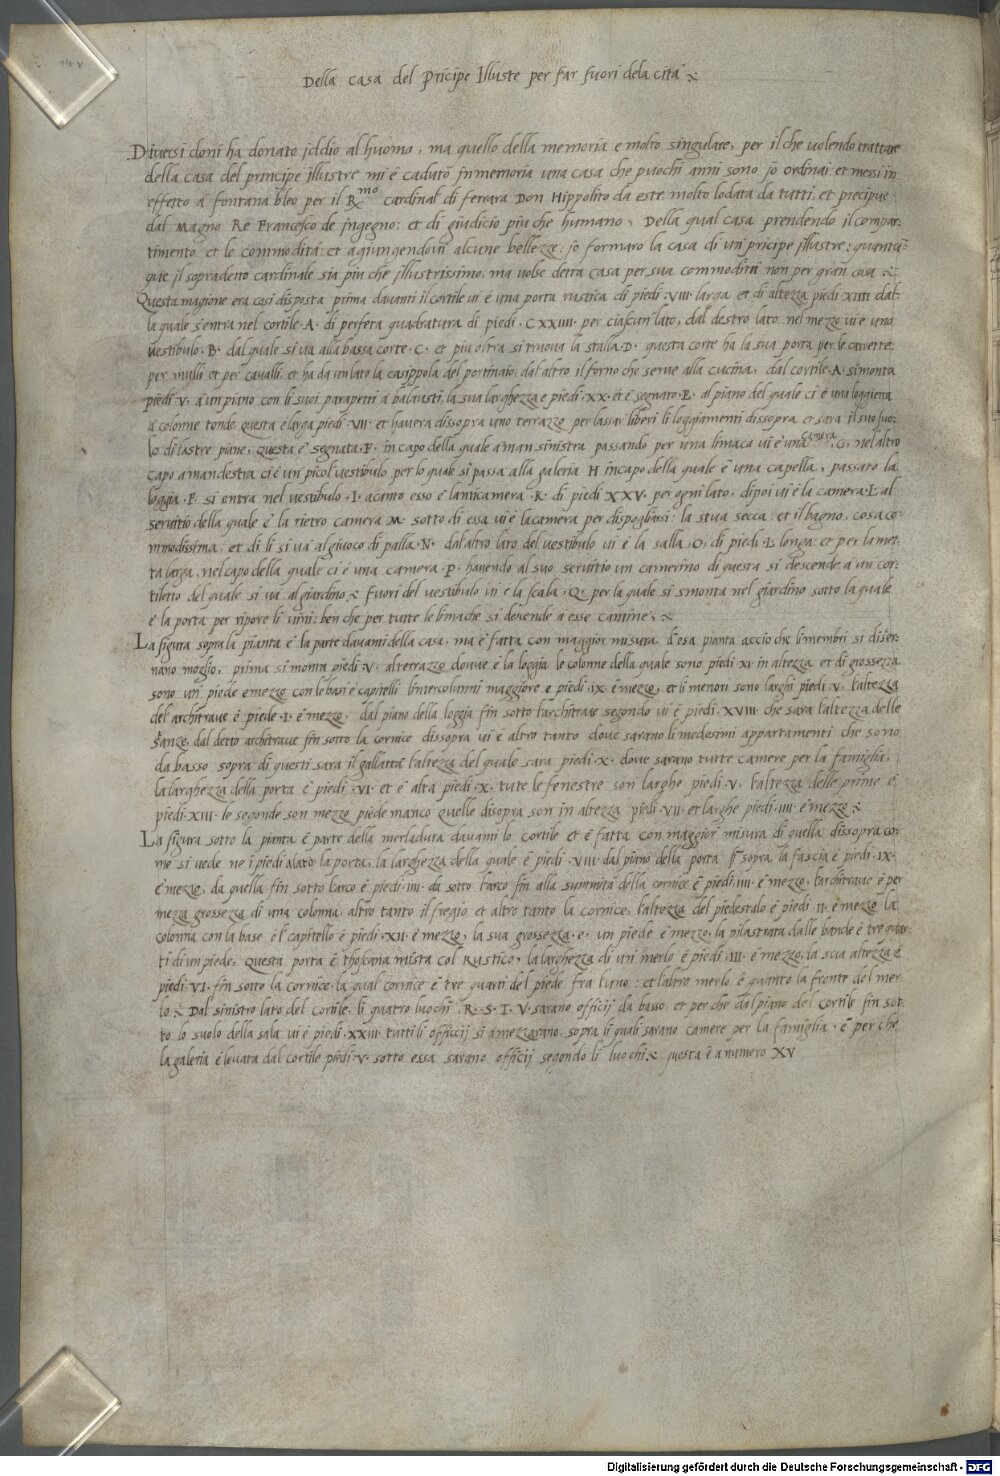 14v
Della casa del pricipe Illuste per far fuori dela cita
Diversi doni ha donato iddio al huomo, ma quello della memoria e molto singulare, per il che volendo trattare
della casa del principe illustre mi è caduto in memoria una casa che puochi anni sono io ordinai et messi in
effetto a fontana bleo per il R.mo cardinal di ferrara Don Hippolito da este molto lodata da tutti, et precipue
dal Magno Re Francesco de ingegno: et di giudicio piu che humano, Della qual casa prendendo il compar-
timento et le commodità: et agiungendovi alcune bellezze: io formaro la casa di un pricipe illustre: quantū-
que il sopradetto cardinale sia piu che illustrissimo, ma volse detta casa per sua commodità non per gran cosa
Questa magione era cosi disposta prima davanti il cortile vi è una porta rustica di piedi .VIII. larga et di altezza piedi XIIII dal-
la quale s'entra nel cortile .A. di perfeta quadratura di piedi .CXXIIII. per ciascun lato, dal destro lato nel mezzo vi è uno
vestibulo .B. dal quale si va alla bassa corte .C. et piu oltra si truova la stalla .D. questa corte ha la sua porta per le carrette:
per mulli et per cavalli, et ha da un lato la casippola del portinaio: dal altro il forno che serve alla cucina, dal cortile .A. si monta
piedi .V. a un piano con li suoi parapetti a balausti, la sua larghezza e piedi .XX. et è segnato .E. al piano del quale ci è una loggietta
a colonne tonde, questa è larga piedi .VII. et havera dissopra uno terrazzo per lassar liberi li loggiamenti dissopra et sara il suo suo-
lo di lastre piane, questa è segnata .F. in capo della quale a man sinistra passando per una limaca vi è una camera .G. nel altro
capo a man destra ci è un picol vestibulo per lo quale si passa alla galeria H in capo della quale è una capella, passato la
loggia .F. si entra nel vestibulo .I. acanto esso è lanticamera .K. di piedi XXV. per ogni lato, dipoi vi è la camera .L. al
servitio della quale è la rietro camera M. sotto di essa vi è la camera per dispogliarsi: la stua secca: et il bagno, cosa co-
mmodissima, et di li si va al giuoco di palla .N. dal altro lato del vestibulo vi è la salla, O, di piedi .L. longa: et per la met-
ta larga, nel capo della quale ci è una camera .P. havendo al suo servitio un camerino di questa si descende a un cor-
tiletto del quale si va al giardino fuori del vestibulo vi è la scala .Q. per la quale si smonta nel giardino sotto la quale
è la porta per ripore li vini: ben che per tutte le limache si descende a esse cantine,
La figura sopra la pianta è la parte davanti della casa, ma è fatta con maggior misura d'essa pianta accio che li membri si discer-
nano meglio, prima si monta piedi .V. al terrazzo dovue è la loggia le colonne della quale sono piedi XI in altezza et di grossezza
sono un piede e mezzo con le basi e capitelli l'intercolunni maggiore e piedi .IX. è mezzo, et li menori sono larghi piedi .V. l'altezza
del architrave è piede .I. è mezzo, dal piano della loggia fin sotto l'architrave segondo vi è piedi .XVIII. che sara l'altezza delle
stanze, dal detto architrave fin sotto la cornice dissopra vi è altro tanto dove sarano li modesimi appartamenti che sono
da basso sopra di questi sara il gallatta l'altezza del quale sara piedi .X. dove sarano tutte camere per la famiglia,
la larghezza della porta è piedi .VI. et è alta piedi .X. tute le fenestre son larghe piedi .V. l'altezza delle prime è
piedi .XIII. le segonde son mezzo piede manco quelle disopra son in altezza piedi .VII. et larghe piedi .IIII. è mezzo
La figura sotto la pianta è parte della merladura davanti lo cortile et è fatta con maggior misura di quella dissopra co-
me si vede ne i piedi a lato la porta, la larghezza della quale è piedi .VIII. dal piano della porta fin sopra la fascia è piedi .IX.
è mezzo, da quella fin sotto l'arco è piedi .IIII. da sotto l'arco fin alla summità della cornice è piedi .IIII. è mezzo, l'architrave è per
meza grossezza di una colonna, altro tanto il fregio et altro tanto la cornice, l'altezza del piedestalo è piedi .II. è mezzo la
colonna con la base è l capitello è piedi .XII. è mezzo, la sua grossezza .e. un piede è mezzo, la pilastrata dalle bande è tre quar-
ti di un piede, questa porta è thoscana mista col Rustico, la larghezza di un merlo è piedi .III. è mezzo, la sua altezza è
piedi .VI. fin sotto la cornice, la qual cornice è tre quarti del piede fra l'uno: et l'altro merlo è quanto la fronte del mer-
lo. Dal sinistro lato del cortile, li quatro luochi .R. S. T. V. sarano officij da basso et per che dal piano del cortile fin sot-
to lo suolo della sala vi è piedi .XXIII. tutti li officcij si amezzarano, sopra li quali sarano camere per la famiglia, è per che
la galeria è levata dal cortile piedi .V. sotto essa sarano officij segondo li luochi questa è a numero XV
Digitalisierung gefördert durch die Deutsche Forschungsgemeinschaft - DFG